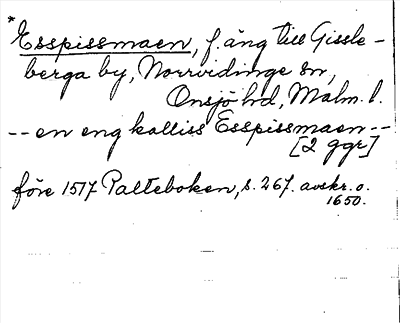 * Esspissmaen, f. äng till Gissle-
berga by, Norrvidinge sn,
Onsjö hd, Malm. l.
-- en eng kalliss Esspissmaen --
[2 ggr]
före 1517 Palteboken, s. 267. avskr. o.
1650.